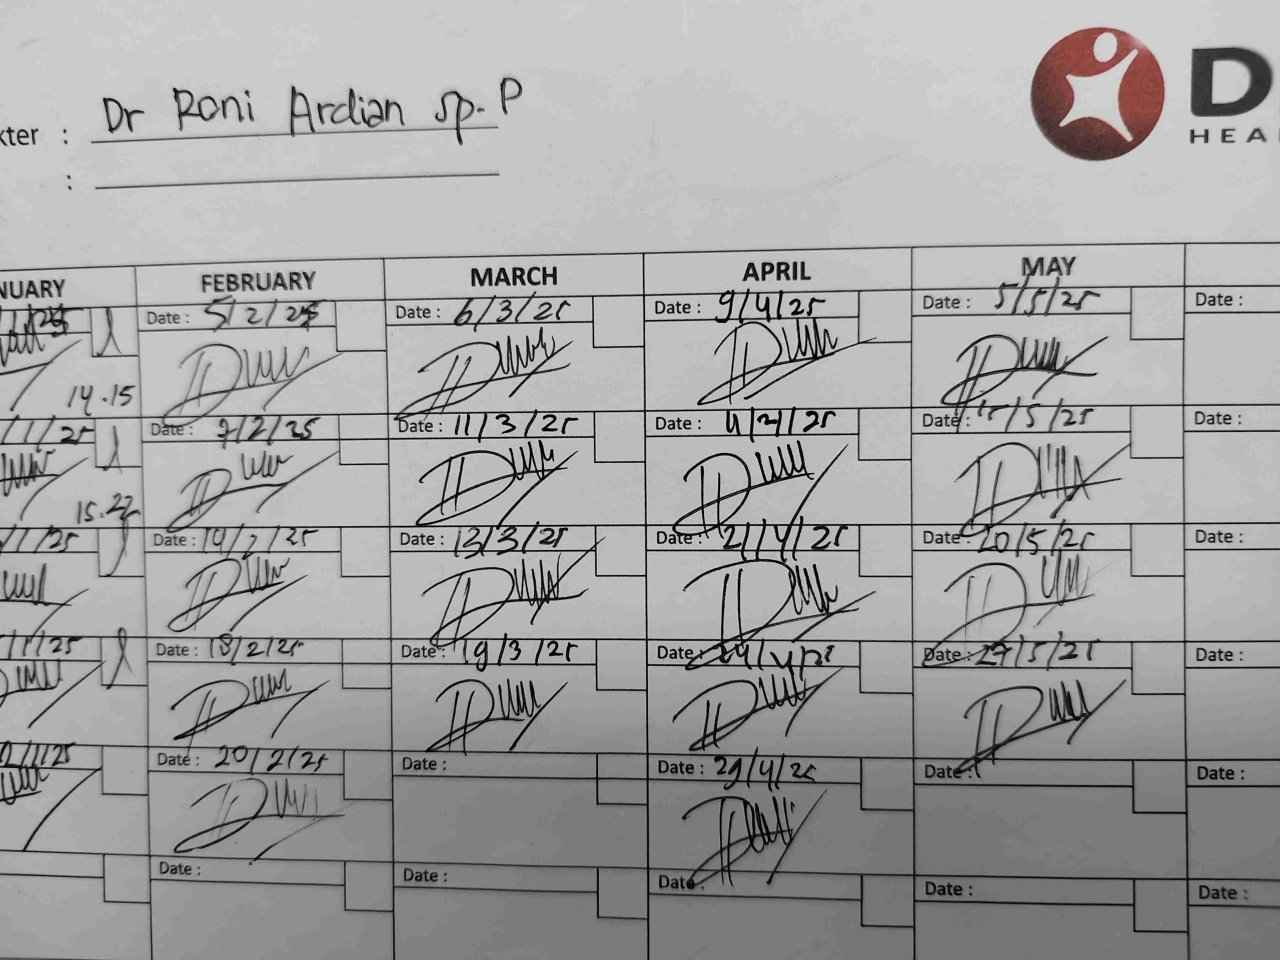 kter : Dr Roni Ardian sp. P
:
D
HEA
NUARY FEBRUARY MARCH APRIL MAY
Date : 5/2/25 Date : 6/3/25 Date : 9/4/25 Date : 5/5/25 Date :
14.15
/1/25 Date : 7/2/25 Date : 11/3/25 Date : Date : /5/25 Date :
15.22
/1/25 Date : 14/2/25 Date : 13/3/25 Date : 21/4/25 Date : 20/5/25 Date :
/1/25 Date : 18/2/25 Date : 19/3/25 Date : 24/4/25 Date : 27/5/25 Date :
/1/25 Date : 20/2/25 Date : Date : 29/4/25 Date : Date :
Date : Date : Date : Date : Date :